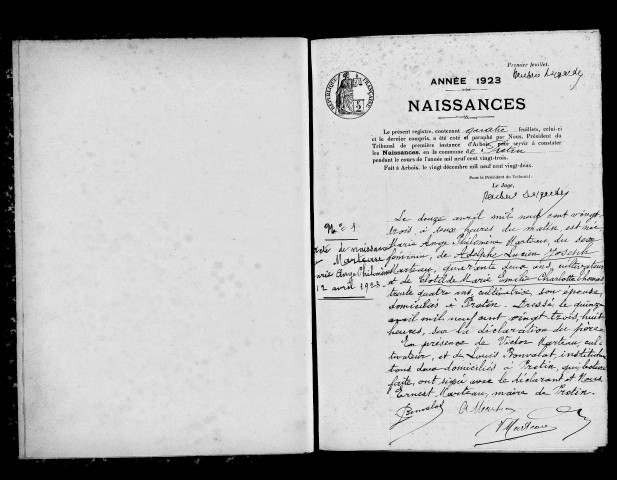 Premier feuillet.
ANNÉE 1923
RÉPUBLIQUE FRANÇAISE
NAISSANCES
Le présent registre, contenant quatre feuillets, celui-ci
et le dernier compris, a été coté et paraphé par Nous, Président du
Tribunal de première instance d'Arbois, pour servir à constater
les Naissances, en la commune de Pretin
pendant le cours de l'année mil neuf cent vingt-trois.
Fait à Arbois, le vingt décembre mil neuf cent vingt-deux.
Pour le Président du Tribunal:
Le Juge,
N° 1
de naissance
Marteau
Marie Ange Philomène
12 avril 1923.
Le douze avril mil neuf cent vingt
trois, à deux heures du matin, est née
Marie Ange Philomène Marteau, du sexe
féminin, de Adolphe Lucien Joseph
Marteau, quarante deux ans, cultivateur
et de Clotilde Marie Emilie Charlotte
trente quatre ans, cultivatrice, son épouse
domiciliés à Pretin. Dressé le quinze
avril mil neuf cent vingt trois, huit
heures, sur la déclaration du père.
En présence de Victor Marteau, cul-
tivateur, et de Louis Bonvalot, instituteur
tous deux domiciliés à Pretin, qui, lecture
faite, ont signé avec le déclarant et Nous
Ernest Marteau, maire de Pretin.
Bonvalot A Marteau
V Marteau